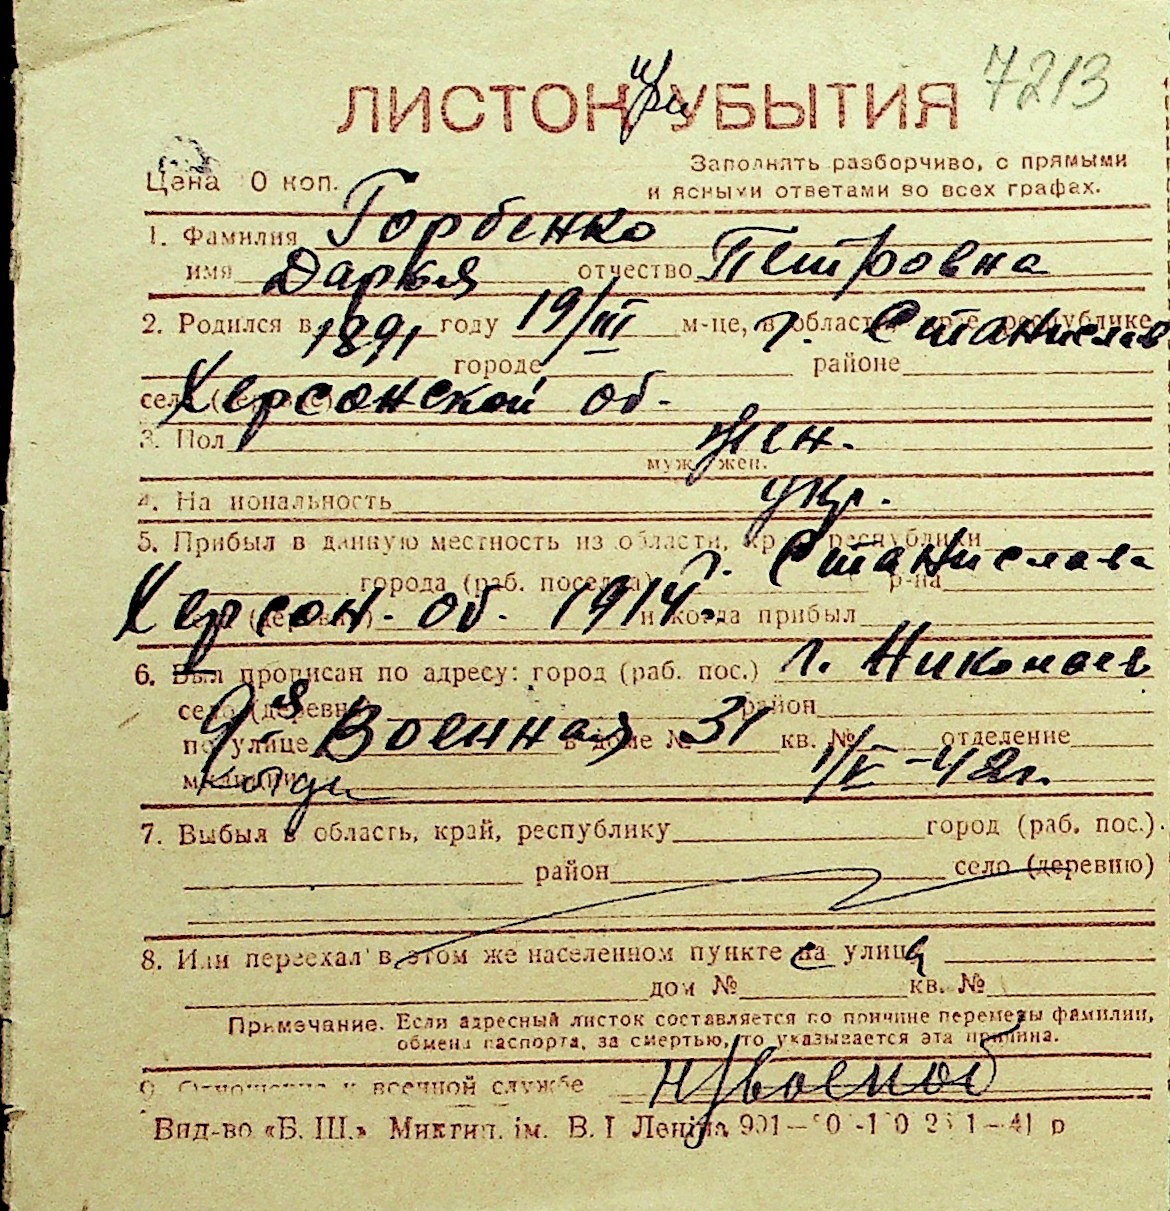 7213
ЛИСТОК при УБЫТИЯ
Цена 0 коп.
Заполнять разборчиво, с прямыми
и ясными ответами во всех графах.
1. Фамилия Горбенко
имя Дарья отчество Петровна
2. Родился в 1891 году 19/III м-це, в области, крае, республике г. Станислав
городе районе
село (деревне) Херсонской об.
3. Пол жен.
муж. жен.
4. На иональность укр.
5. Прибыл в данную местность из области, кр республики
города (раб. поселка) г. Станислава р-на
Херсон. об. 1914 г. (деревни) и когда прибыл
6. Был прописан по адресу: город (раб. пос.) г. Николаев
село (деревня) район
по улице 9-я Военная в доме № 31 кв. № отделение
милиции Когда 1/V-42г.
7. Выбыл в область, край, республику город (раб. пос.)
район село (деревню)
8. Или переехал в этом же населенном пункте на улицу
дом № кв. №
Примечание. Если адресный листок составляется по причине перемены фамилии,
обмена паспорта, за смертью, то указывается эта причина.
9. Отношение к военной службе н/военоб
Вид-во «Б. Ш.» Миктип. ім. В. І Леніна